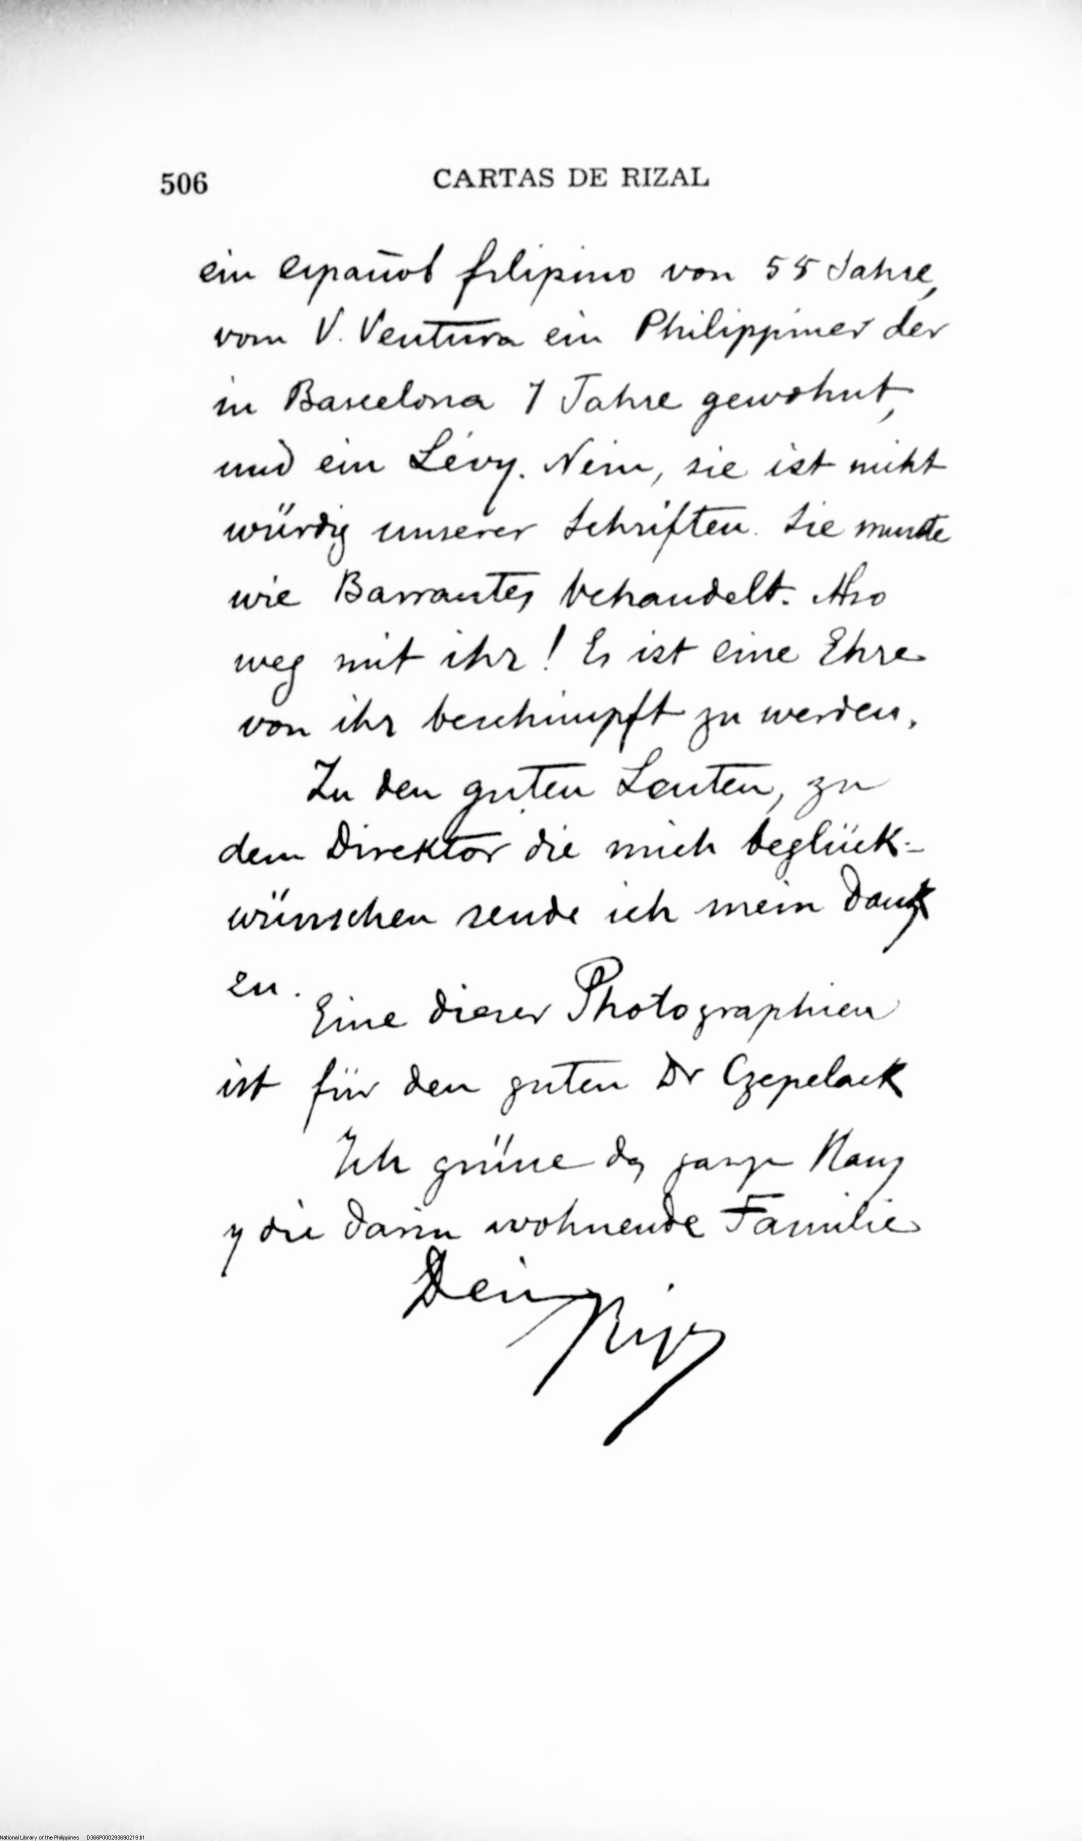 506 CARTAS DE RIZAL
ein español filipino von 55 Jahre,
vom V. Ventura ein Philippiner der
in Barcelona 7 Jahre gewohnt,
und ein Lévy. Nein, sie ist nicht
würdig unserer Schriften. Sie
wie Barrantes behandelt. Also
weg mit ihr! Es ist eine Ehre
von ihr beschimpft zu werden.
Zu den guten Leuten, zu
dem Direktor die mich beglück-
wünschen sende ich mein Dank
zu.
Eine dieser Photographien
ist für den guten Dr Czepelack
Ich grüsse das ganze Haus
y die darin wohnende Familie
Dein
Rizal
National Library of the Philippines